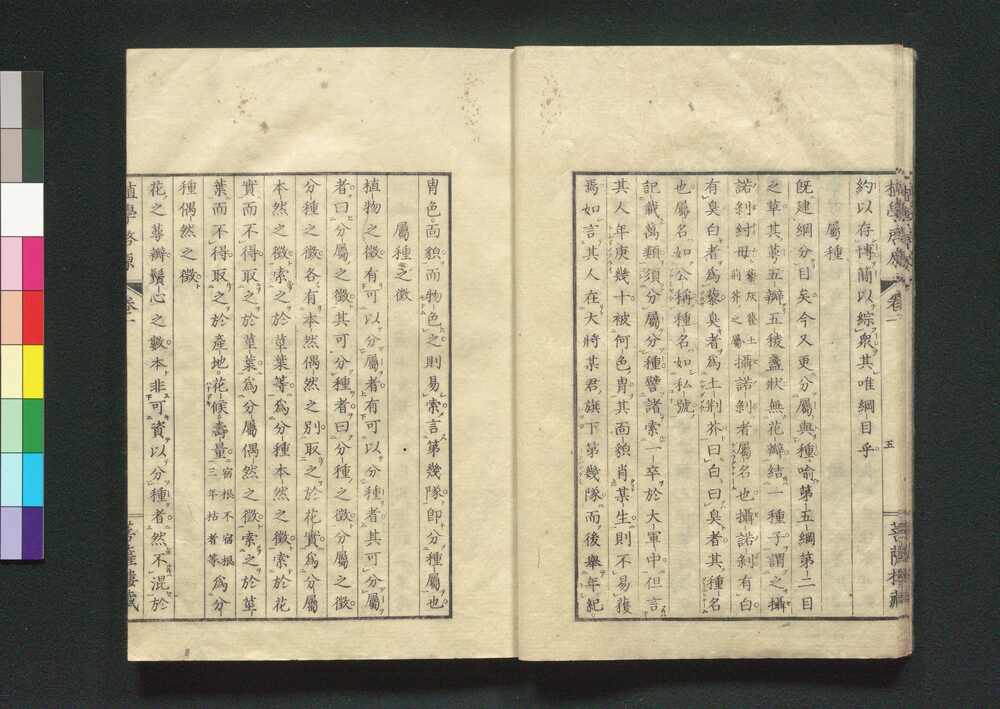 植學啓原 卷一 五 菩薩樓藏
約以存博簡以綜衆其唯綱目乎
屬種
既建綱分目矣今又更分屬與種喩第五綱第二目
之草其萼五瓣五稜盞狀無花瓣結一種子謂之攝
諾剝紂母藜灰藋土荊芥之屬攝諾剝者屬名也攝諾剝有白
有臭白者爲藜臭者爲土荆芥曰白曰臭者其種名
也屬名如公稱種名如私號
記載萬類須分屬分種譬諸索一卒於大軍中但言
其人年庚幾十被何色冑其面貌肖某生則不易獲
焉如言其人在大將某君旗下第幾隊而後擧年紀
冑色而貌而物色之則易索言第幾隊卽分種屬也
屬種之徵
植物之徵有可以分屬者有可以分種者其可分屬
者曰分屬之徵其可分種者曰分種之徵分屬之徵
分種之徵各有本然偶然之別取之於花實爲分屬
本然之徵索之於草葉等爲分種本然之徵索於花
實而不得取之於莖葉爲分屬偶然之徵索之於莖
葉而不得取之於産地花候壽量宿根不宿根三年枯者等爲分
種偶然之徵
花之蕚瓣鬚心之數本非可資以分種者然不混於
植學啓原 卷一 菩薩樓藏